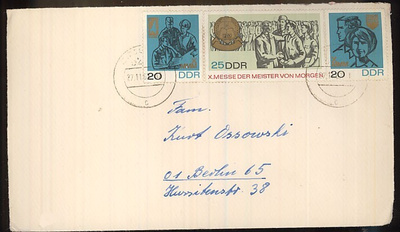 20 DDR
25 DDR
X.MESSE DER MEISTER VON MORGEN
20 DDR
Fam.
Kurt Ossowski
01 Berlin 65
Hussitenstr 38